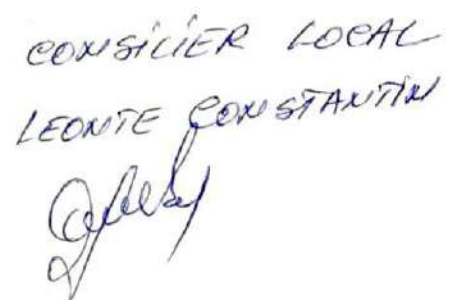 CONSILIER LOCAL
LEONTE CONSTANTIN